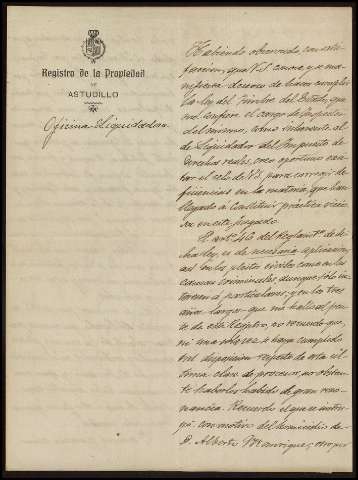 Registro de la Propiedad
DE
ASTUDILLO
Oficina Liquidadora
Habiendo observado, con satis-
faccion, que V.S. conoce y se ma-
nifiesta deseoso de hacer cumplir
la ley del Timbre del Estado, que
me confiere el cargo de Inspector
del mismo, como inherente al
de Liquidador del Impuesto de
Derechos reales, creo oportuno exci-
tar el celo de V.S. para corregir de-
ficiencias en la materia, que han
llegado a constituir práctica vicio-
sa en este Juzgado.
El artº 46 del Reglamtº de di-
cha ley, es de necesaria aplicacion,
así en los pleitos civiles como en las
causas criminales, aunque sólo in-
teresen á particulares, y en los tres
años largos que me hallo al fren-
te de este Registro, no recuerdo que,
ni una sola vez se haya cumplido
tal disposicion respecto de esta úl-
tima clase de procesos, no obstan-
te haberlos habido de gran reso-
nancia. Recuerdo el que se instru-
yó con motivo del homicidio de
D. Alberto Manrique, otro por